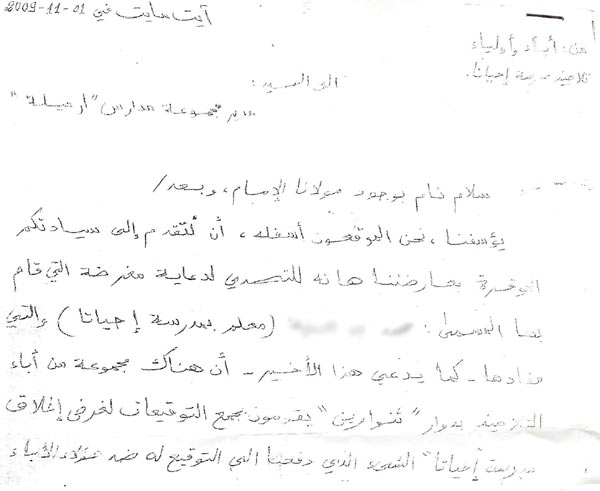 آيت هايت في 01-11-2009
من: أباء وأولياء
تلاميذ مدرسة إحياتا.
الى السيد:
مدير مجموعة مدارس "ارميلة"
سلام تام بوجود مولانا الإمام، وبعد/
يؤسفنا، نحن الموقعون أسفله، أن نتقدم إلى سيادتكم
الموقرة بعارضتنا هاته للتصدي لدعاية مغرضة التي قام
بها المسمى: (معلم بمدرسة إحياتا) والتي
مفادها - كما يدعي هذا الأخير - أن هناك مجموعة من أباء
التلاميذ بدوار "تنوارين" يقومون بجمع التوقيعات لغرض إغلاق
مدرسة إحياتا" الشيء الذي دفعنا الى التوقيع له ضد هؤلاء الأباء